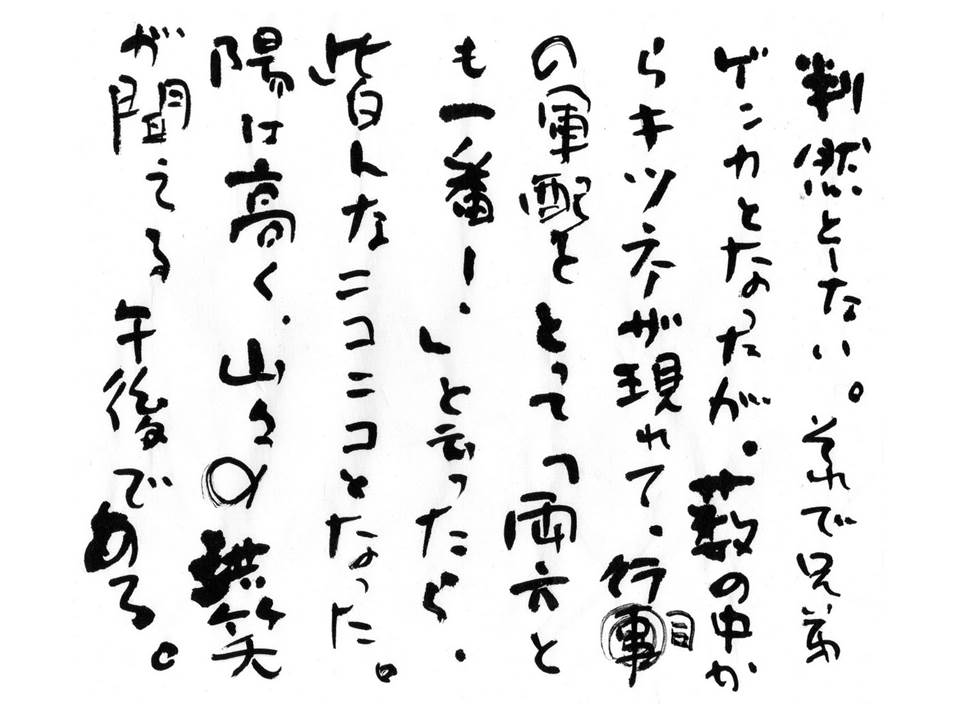 判然としない。それで兄弟
ゲンカとなったが。藪の中か
らキツネが現れて、行事司
の軍配をとって「両方と
も一番！」と云ったら、
皆んなニコニコとなった。
陽は高く、山々の哄笑
が聞える午後である。